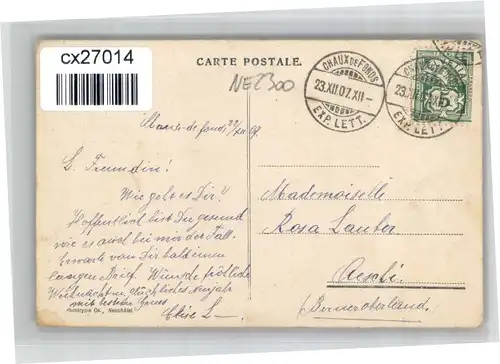 cx27014
CARTE POSTALE.
NE2300
CHAUX DE FONDS
23.XII.07.XII-
EXP. LETT.
CHAUX DE FONDS
23.XII
EXP. LETT.
5
Chaux-de-fond, 22/XII 07.
L. Freundin!
Wie geht es Dir?
Hoffentlich bist Du gesund
wie es auch bei mir der Fall.
Erwarte von Dir bald einen
langen Brief. Wünsche fröhliche
Weihnachten, glückliches Neujahr
mit besten Gruss
Elise L—
Phototypie Co., Neuchâtel
Mademoiselle
Rosa Lauber
Aeschi
(Berneroberland.)